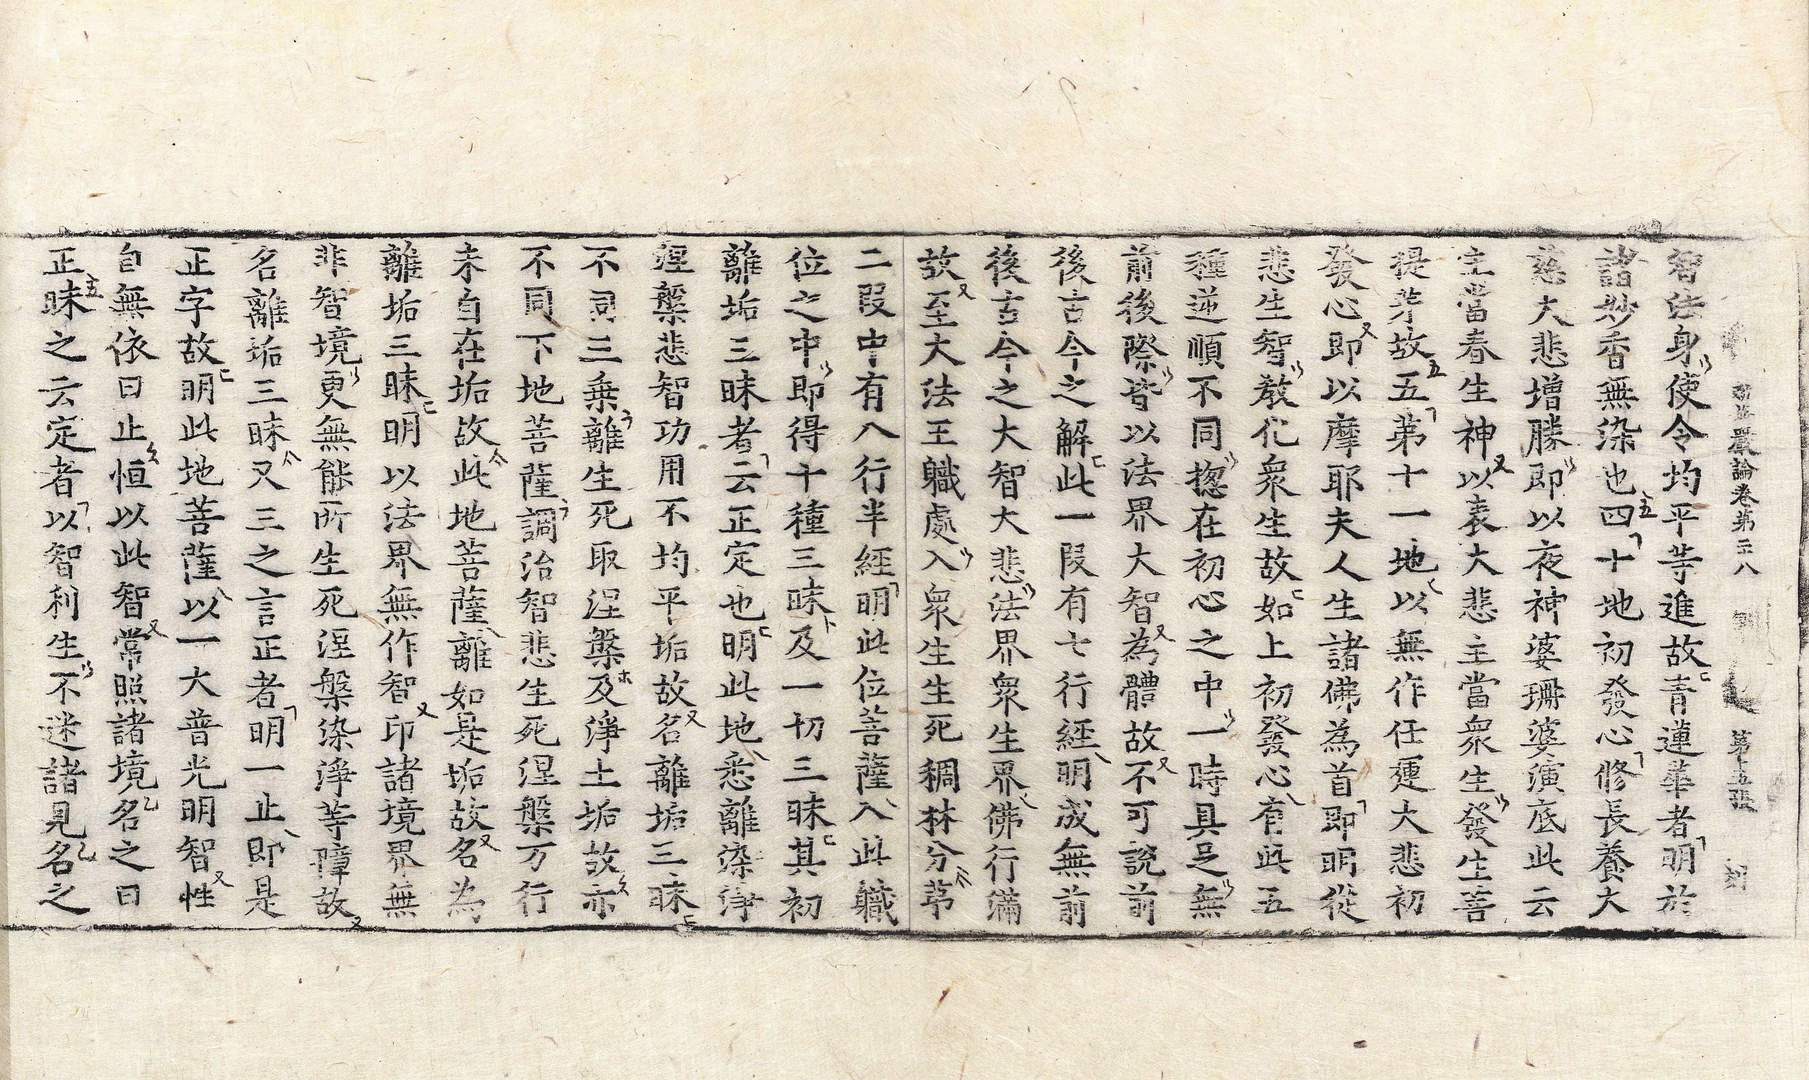 嚴論卷第三八 第十五張 刻
智法身使令均平等進故青蓮華者明於
諸妙香無染也四十地初發心修長養大
慈大悲增勝即以夜神婆珊婆演底此云
主當春生神以表大悲主當衆生發生菩
提芽故五第十一地以無作任運大悲初
發心即以摩耶夫人生諸佛為首即明從
悲生智教化衆生故如上初發心有此五
種逆順不同揔在初心之中一時具足無
前後際皆以法界大智為體故不可說前
後古今之解此一叚有七行經明成無前
後古今之大智大悲法界衆生界佛行滿
故至大法王職處入衆生生死稠林分苐
二叚中有八行半經明此位菩薩入此職
位之中即得十種三昧及一切三昧其初
離垢三昧者云正定也明此地悉離染淨
涅槃悲智功用不均平垢故名離垢三昧
不同三乗離生死取涅槃及淨土垢故亦
不同下地菩薩調治智悲生死涅槃万行
未自在垢故此地菩薩離如是垢故名為
離垢三昧明以法界無作智印諸境界無
非智境更無能所生死涅槃染淨等障故
名離垢三昧又三之言正者明一止即是
正字故明此地菩薩以一大普光明智性
自無依曰止恒以此智常照諸境名之曰
正昧之云定者以智利生不迷諸見名之